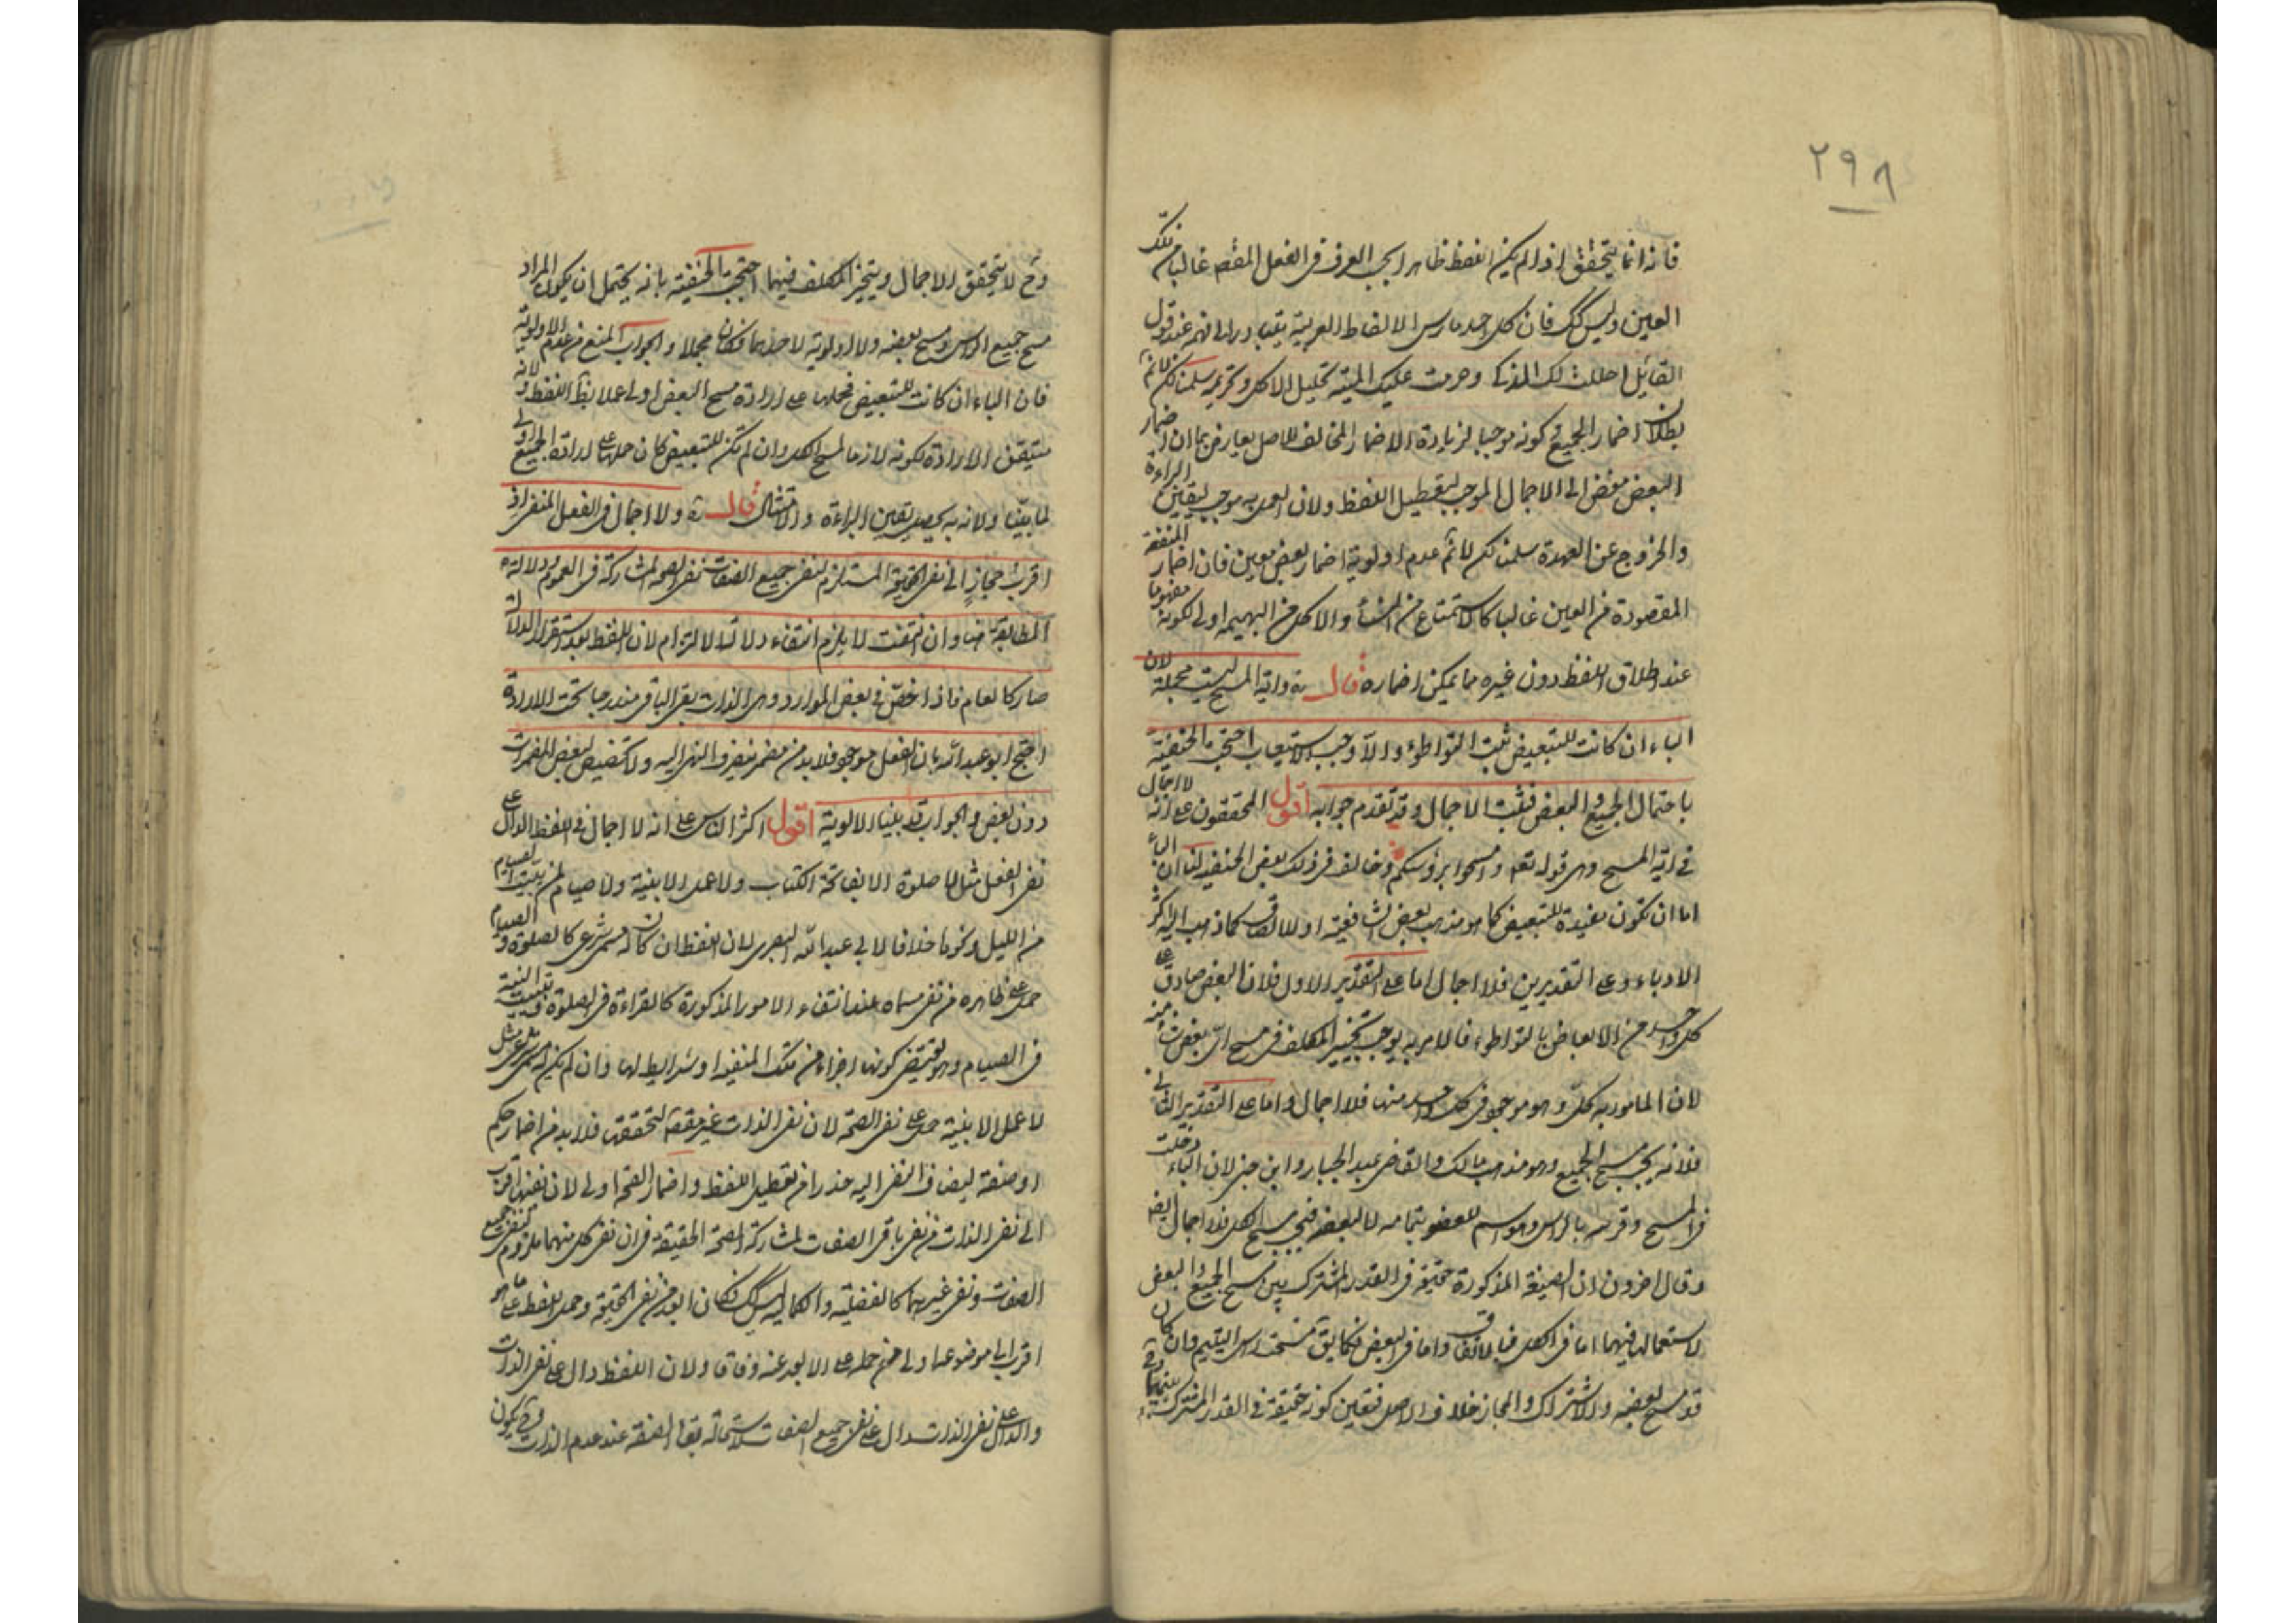 ٢٩٨
فانه انما يتحقق اذا لم يكن اللفظ ظاهرا بحسب العرف في الفعل المقصود غالبا من تلك
العين وليس كك فان كل احد مارس الالفاظ العربية يتبادر الى فهمه عند قول
القائل احللت لك المذكا وحرمت عليك الميتة تحليل الاكل وتحريمه سلمنا لكن لا نم
بطلان اضمار الجميع وكونه موجبا لزيادة الاضمار المخالف للاصل يعارض بما ان اضمار
البعض مفض الى الاجمال الموجب لتعطيل اللفظ ولان العمل به موجب ليقين البراءة
والخروج عن العهدة سلمنا لكن لا نم عدم اولوية اضمار بعض معين فان اضمار المنفعة
المقصودة من العين غالبا كالاستمتاع من النساء والاكل من البهيمة اولى لكونه مفهوما
عند اطلاق اللفظ دون غيره مما يمكن اضماره قال ره واية المسح ليست مجملة لان
الباء ان كانت للتبعيض ثبت التواطؤ والا وجب الاستيعاب احتجت الحنفية
باحتمال الجميع والبعض فيثبت الاجمال وقد تقدم جوابه اقول المحققون على انه لا اجمال
في اية المسح وهي قوله تعه وامسحوا برؤسكم وخالف في ذلك بعض الحنفية لنا ان الباء
اما ان تكون مفيدة للتبعيض كما هو مذهب بعض الشافعية او للالصاق كما ذهب اليه اكثر
الادباء وعلى التقديرين فلا اجمال اما على التقدير الاول فلان البعض صادق على
كل واحد من الابعاض بالتواطؤ فالامر به يوجب تخيير المكلف في مسح اي بعض شاء منه
لان المامور به كلي وهو موجود في كل واحد منها فلا اجمال واما على التقدير الثاني
فلانه يجب مسح الجميع وهو مذهب مالك والقاضي عبد الجبار وابن جني لان الباء دخلت
في المسح وقرنته بالراس وهو اسم للعضو بتمامه لا لبعضه فيجب مسح الكل فلا اجمال ايضا
وقال اخرون ان الصيغة المذكورة حقيقة في القدر المشترك بين مسح الجميع والبعض
لاستعمالها فيهما اما في الكل فبالاتفاق واما في البعض فكما يق مسحت راس اليتيم وان كان
قد مسح بعضه والاشتراك والمجاز خلاف الاصل فتعين كونه حقيقة في القدر المشترك بينهما
وح لا يتحقق الاجمال ويتخير المكلف فيهما احتجت الحنفية بانه يحتمل ان يكون المراد
مسح جميع الراس ومسح بعضه ولا اولوية لاحدهما فكان مجملا والجواب المنع من عدم الاولوية
فان الباء ان كانت للتبعيض فحملها على ارادة مسح البعض اولى عملا بظ اللفظ ولانه
متيقن الارادة لكونه لازما لمسح الكل وان لم تكن للتبعيض كان حملها على ارادة الجميع اولى
لما بينا ولانه به يحصل يقين البراءة والامتثال قال ره ولا اجمال في الفعل المنفي اذ
اقرب مجاز الى نفي الحقيقة المستلزم لنفي جميع الصفات نفي الصحة لمشاركته في العموم ودلالة
المطابقة هنا وان انتفت لا يلزم انتفاء دلالة الالتزام لان اللفظ بعد استقرار الدلالة
صار كالعام فاذا خص في بعض الموارد وهي الذات بقي الباقي مندرجا تحت الارادة
احتج ابو عبد الله بان الفعل موجود فلا بد من مضمر ينصرف النهي اليه ولا تخصيص لبعض المضمرات
دون بعض والجواب قد بينا الاولوية اقول اكثر الناس على انه لا اجمال في اللفظ الدال على
نفي الفعل مثل لا صلوة الا بفاتحة الكتاب ولا عمل الا بنية ولا صيام لمن لم يبيت الصيام
من الليل ونحوها خلافا لابي عبد الله البصري لان اللفظ ان كان له مسمى شرعي كالصلوة والصيام
حمل على ظاهره من نفي مسماه عند انتفاء الامور المذكورة كالقراءة في الصلوة وتبييت النية
في الصيام وهو يقتضي كونها اجزاء من تلك المنفية او شرايط لها وان لم يكن له مسمى شرعي مثل
لا عمل الا بنية حمل على نفي الصحة لان نفي الذات غير مقصود لتحققها فلا بد من اضمار حكم
او صفة ليضاف النفي اليه حذرا من تعطيل اللفظ واضمار الصحة اولى لان نفيها اقرب
الى نفي الذات من نفي باقي الصفات لمشاركة الصحة الحقيقة في ان نفي كل منهما ملزوم لنفي جميع
الصفات ونفي غيرهما كالفضيلة والكمالية ليس كك فكان ابعد من نفي الحقيقة وحمل اللفظ على ما هو
اقرب الى موضوعه اولى من حمله على الابعد عنه وفاقا ولان اللفظ دال على نفي الذات
والدال على نفي الذات دال على نفي جميع الصفات لاستحالة بقاء الصفة عند عدم الذات وح يكون